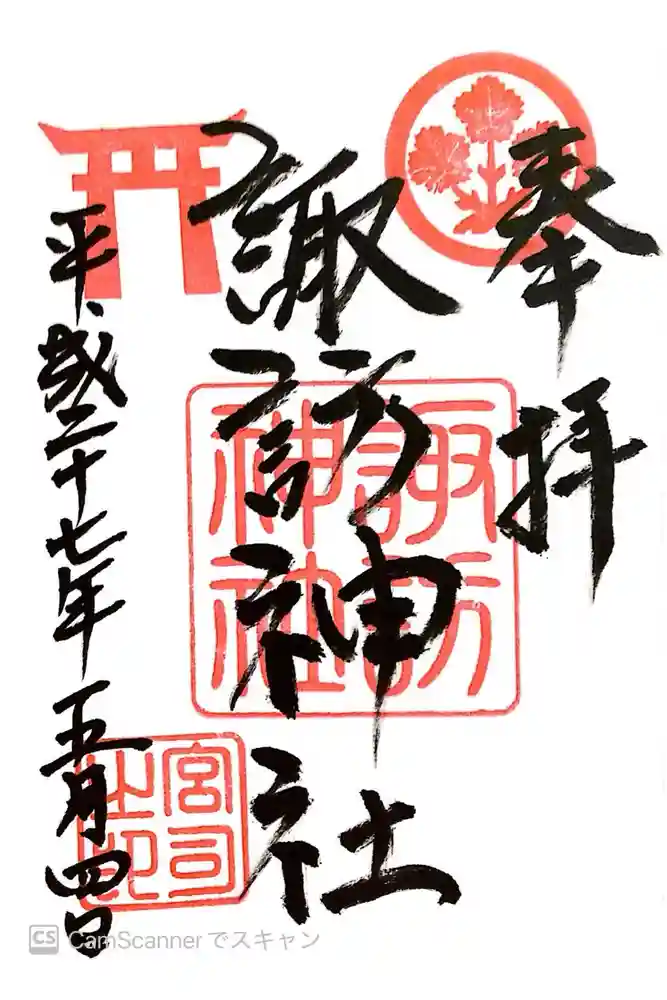 奉拝
諏訪神社
平成二十七年五月四日
諏訪
神社
宮司
之印
CS CamScanner でスキャン